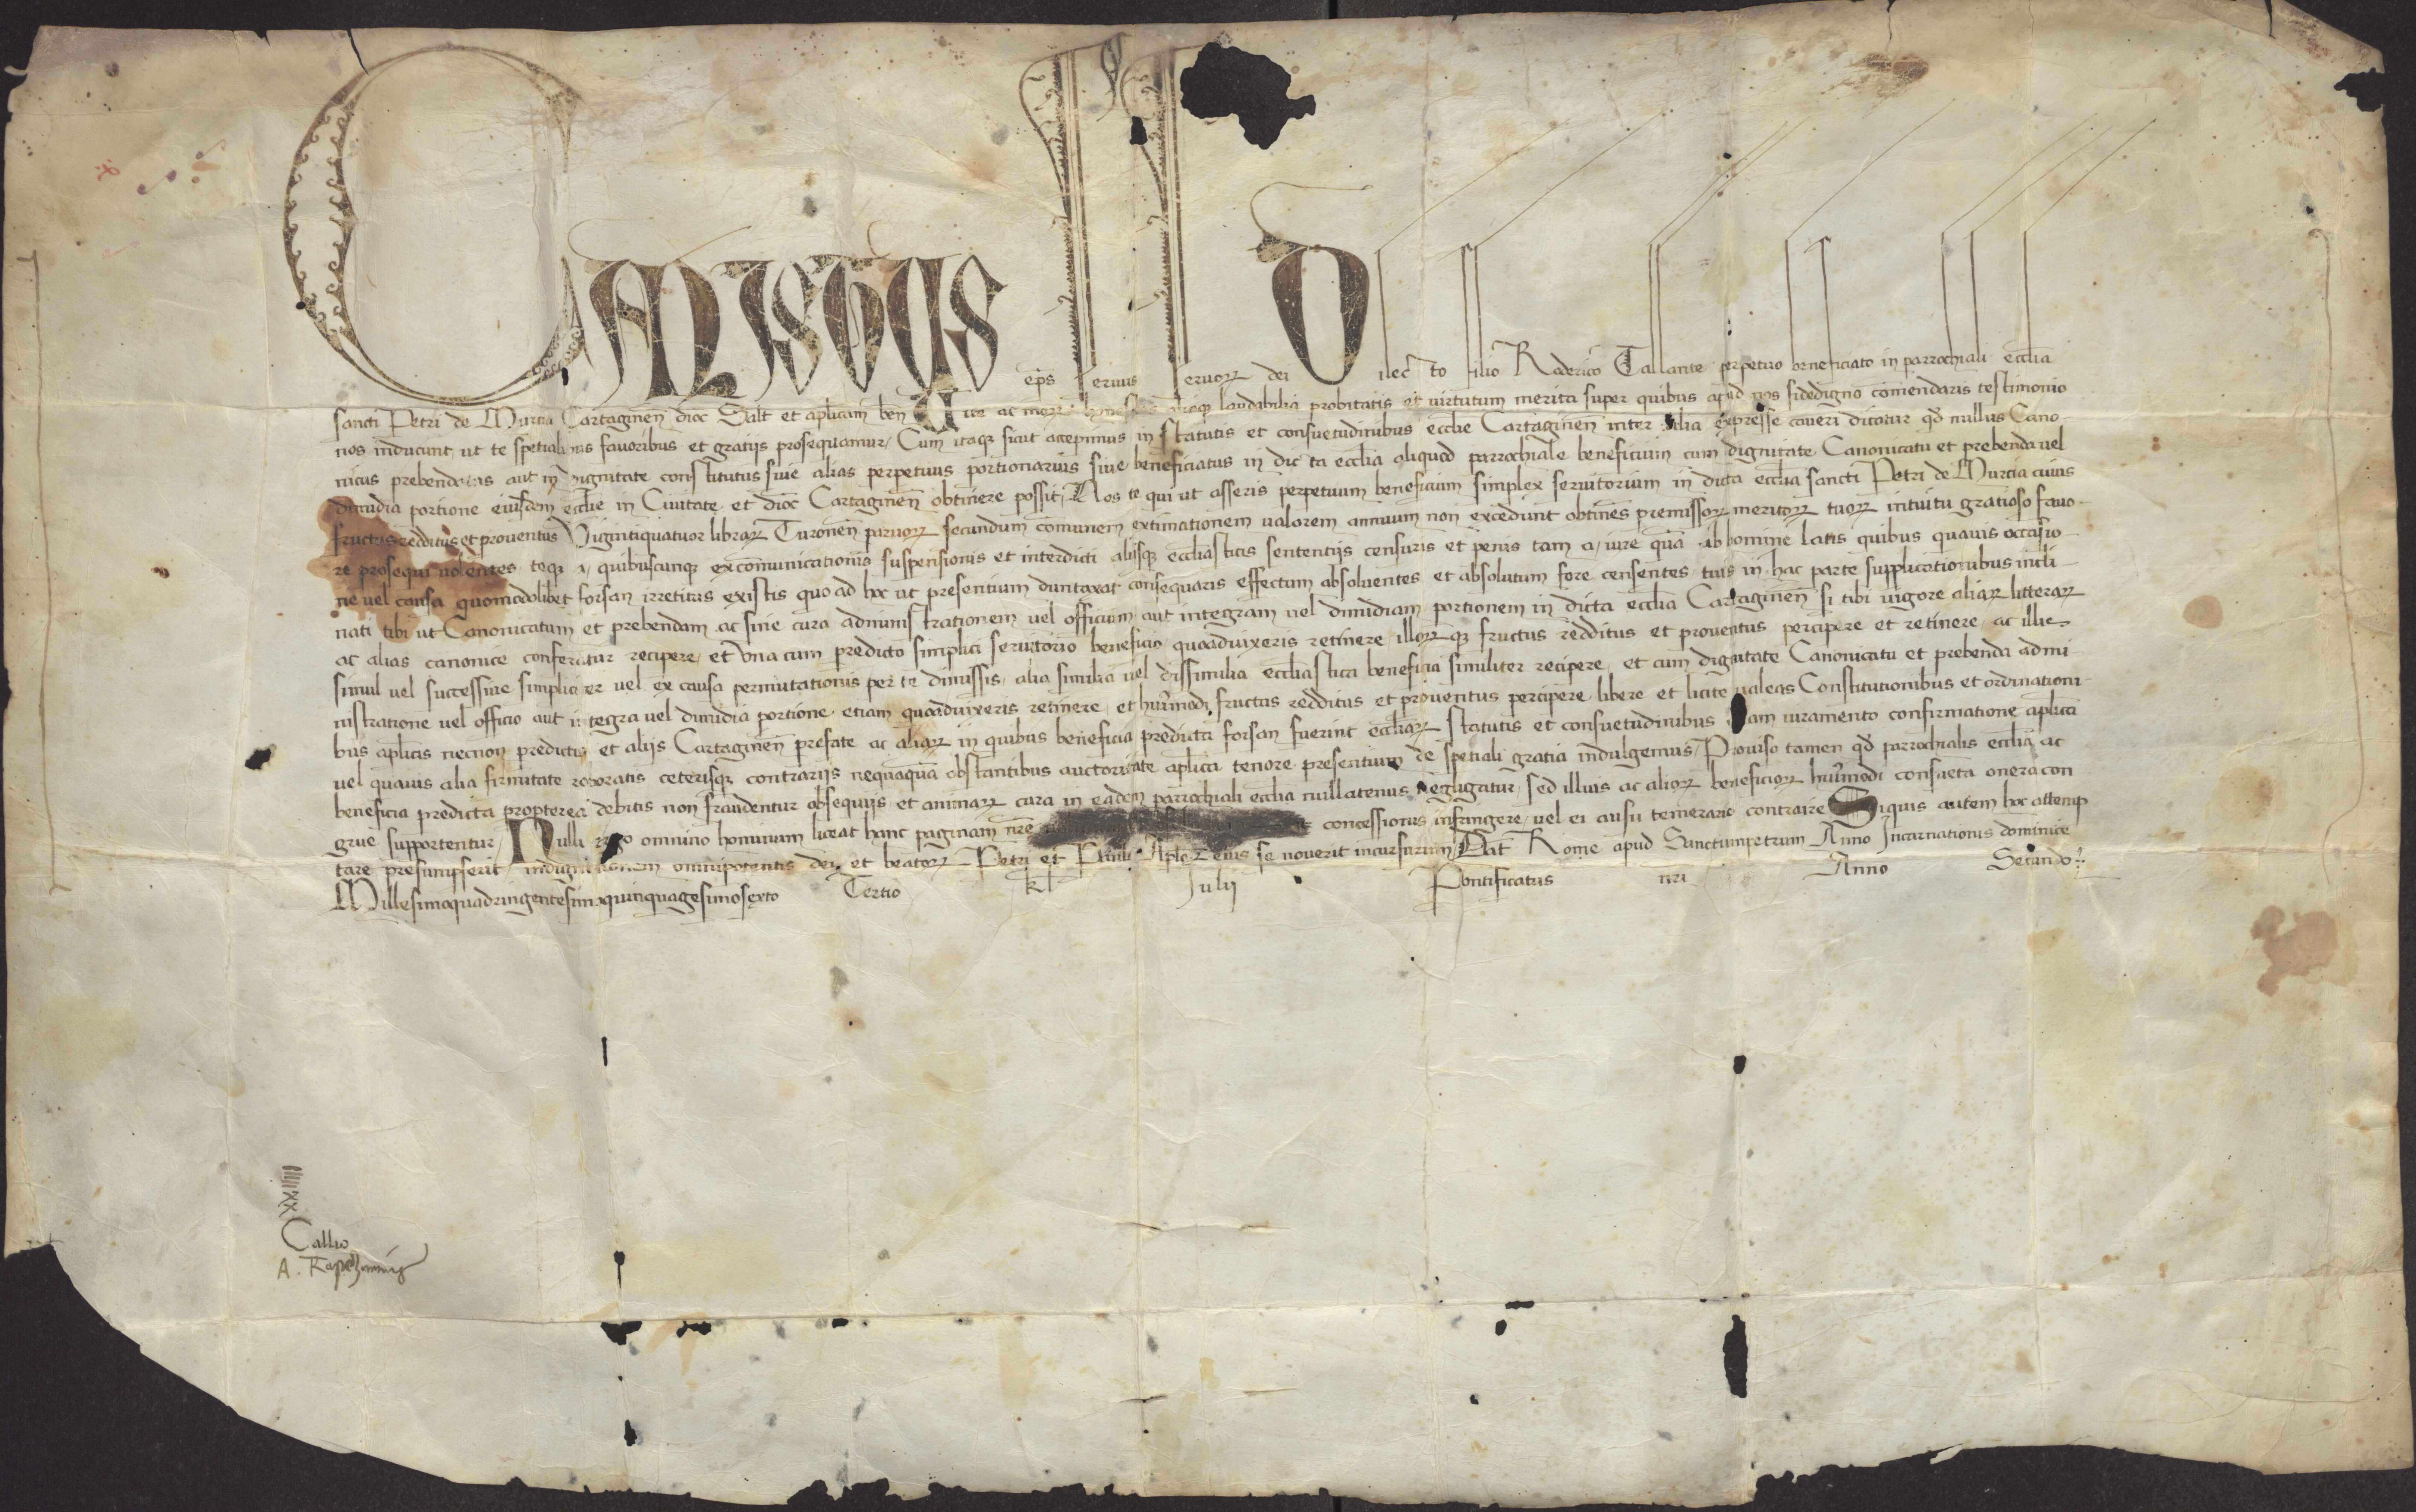 Calistus ep̄s seruus seruoꝝ dei Dilecto filio Roderico Tallante perpetuo beneficiato in parrochiali eccl̄ia
sancti Petri de Murcia Cartaginen̄ dioc̄ Salt̄ et apl̄icam ben̄ Vite ac moꝝ laudabilia probitatis et virtutum merita super quibus apud nos fidedigno comendaris testimonio
nos inducunt ut te spetialibus favoribus et gratijs prosequamur, Cum itaqꝫ sicut accepimus in statutis et consuetudinibus eccl̄ie Cartaginen̄ inter alia expresse caveri dicatur qd̄ nullus Cano
nicus prebendatus aut in dignitate constitutus sive alias perpetuus portionarius sive beneficiatus in dicta eccl̄ia aliquod parrochiale beneficium cum dignitate Canonicatu et prebenda vel
dimidia portione eiusdem eccl̄ie in Civitate et dioc̄ Cartaginen̄ obtinere possit, Nos te qui ut asseris perpetuum beneficium simplex servitorium in dicta eccl̄ia sancti Petri de Murcia cuius
fructus redditus et proventus Vigintiquatuor libraꝝ Turonen̄ parvoꝝ secundum comunem extimationem valorem annuum non excedunt obtines premissoꝝ meritoꝝ tuoꝝ intuitu gratioso favo-
re prosequi volentes teqꝫ a quibuscunqꝫ excomunicationis suspensionis et interdicti alijsqꝫ eccl̄iasticis sententijs censuris et penis tam a iure quā ab homine latis quibus quavis occasio-
ne vel causa quomodolibet forsan irretitus existis quo ad hoc ut presentium duntaxat consequaris effectum absolventes et absolutum fore censentes tuis in hac parte supplicationibus incli-
nati tibi ut Canonicatum et prebendam ac sine cura administrationem vel officium aut integram vel dimidiam portionem in dicta eccl̄ia Cartaginen̄ si tibi vigore aliaꝝ litteraꝝ
ac alias canonice conferatur recipere, et Vna cum predicto simplici servitorio beneficio quoaduixeris retinere illoꝝqꝫ fructus redditus et proventus percipere et retinere ac illis
simul vel successive simpliciter vel ex causa permutationis per te dimissis, alia similia vel dissimilia eccl̄iastica beneficia similiter recipere, et cum dignitate Canonicatu et prebenda admi-
nistratione vel officio aut integra vel dimidia portione etiam quoaduixeris retinere et hui͂modi fructus redditus et proventus percipere libere et licite valeas Constitutionibus et ordinationi-
bus apl̄icis necnon predictis et alijs Cartaginen̄ prefate ac aliaꝝ in quibus beneficia predicta forsan fuerint eccl̄iaꝝ statutis et consuetudinibus etiam iuramento confirmatione apl̄ica
vel quavis alia firmitate roboratis ceterisqꝫ contrarijs nequaquā obstantibus auctoritate apl̄ica tenore presentium de spetiali gratia indulgemus, Proviso tamen qd̄ parrochialis eccl̄ia ac
beneficia predicta propterea debitis non fraudentur obsequijs et animaꝝ cura in eadem parrochiali eccl̄ia nullatenus negligatur, sed illius ac alioꝝ beneficioꝝ hui͂modi consueta onera con
grue supportentur, Nulli ergo omnino hominum liceat hanc paginam nr̄e concessionis infringere, vel ei ausu temerario contraire Siquis autem hoc attemp
tare presumpserit indignationem omnipotentis dei et beatoꝝ Petri et Pauli Apl̄oꝝ eius se noverit incursurum, Dat̄ Rome apud Sanctumpetrum Anno Incarnationis dominice
Millesimoquadringentesimoquinquagesimosexto Tertio kl̄ Julij Pontificatus nr̄i Anno Secundo
Callio